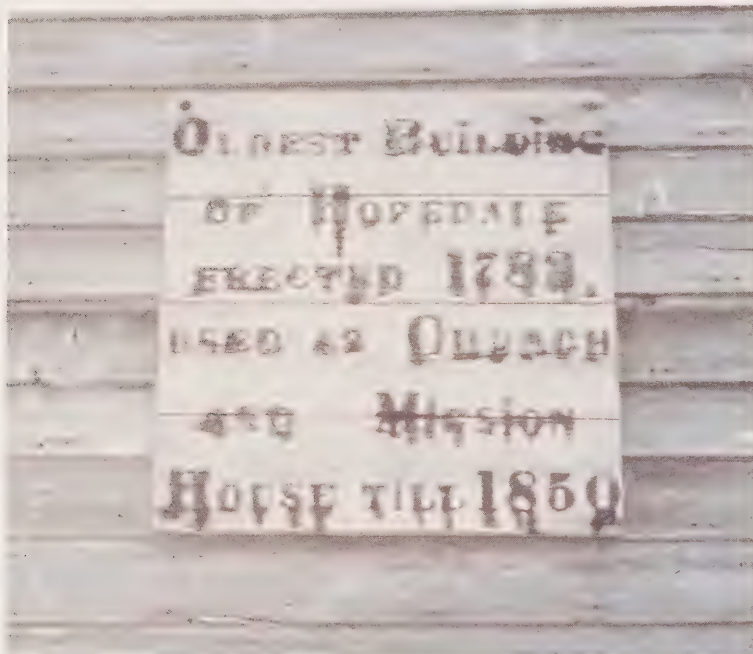 OLDEST BUILDING
OF HOPEDALE
ERECTED 1782.
USED AS CHURCH
AND MISSION
HOUSE TILL 1850